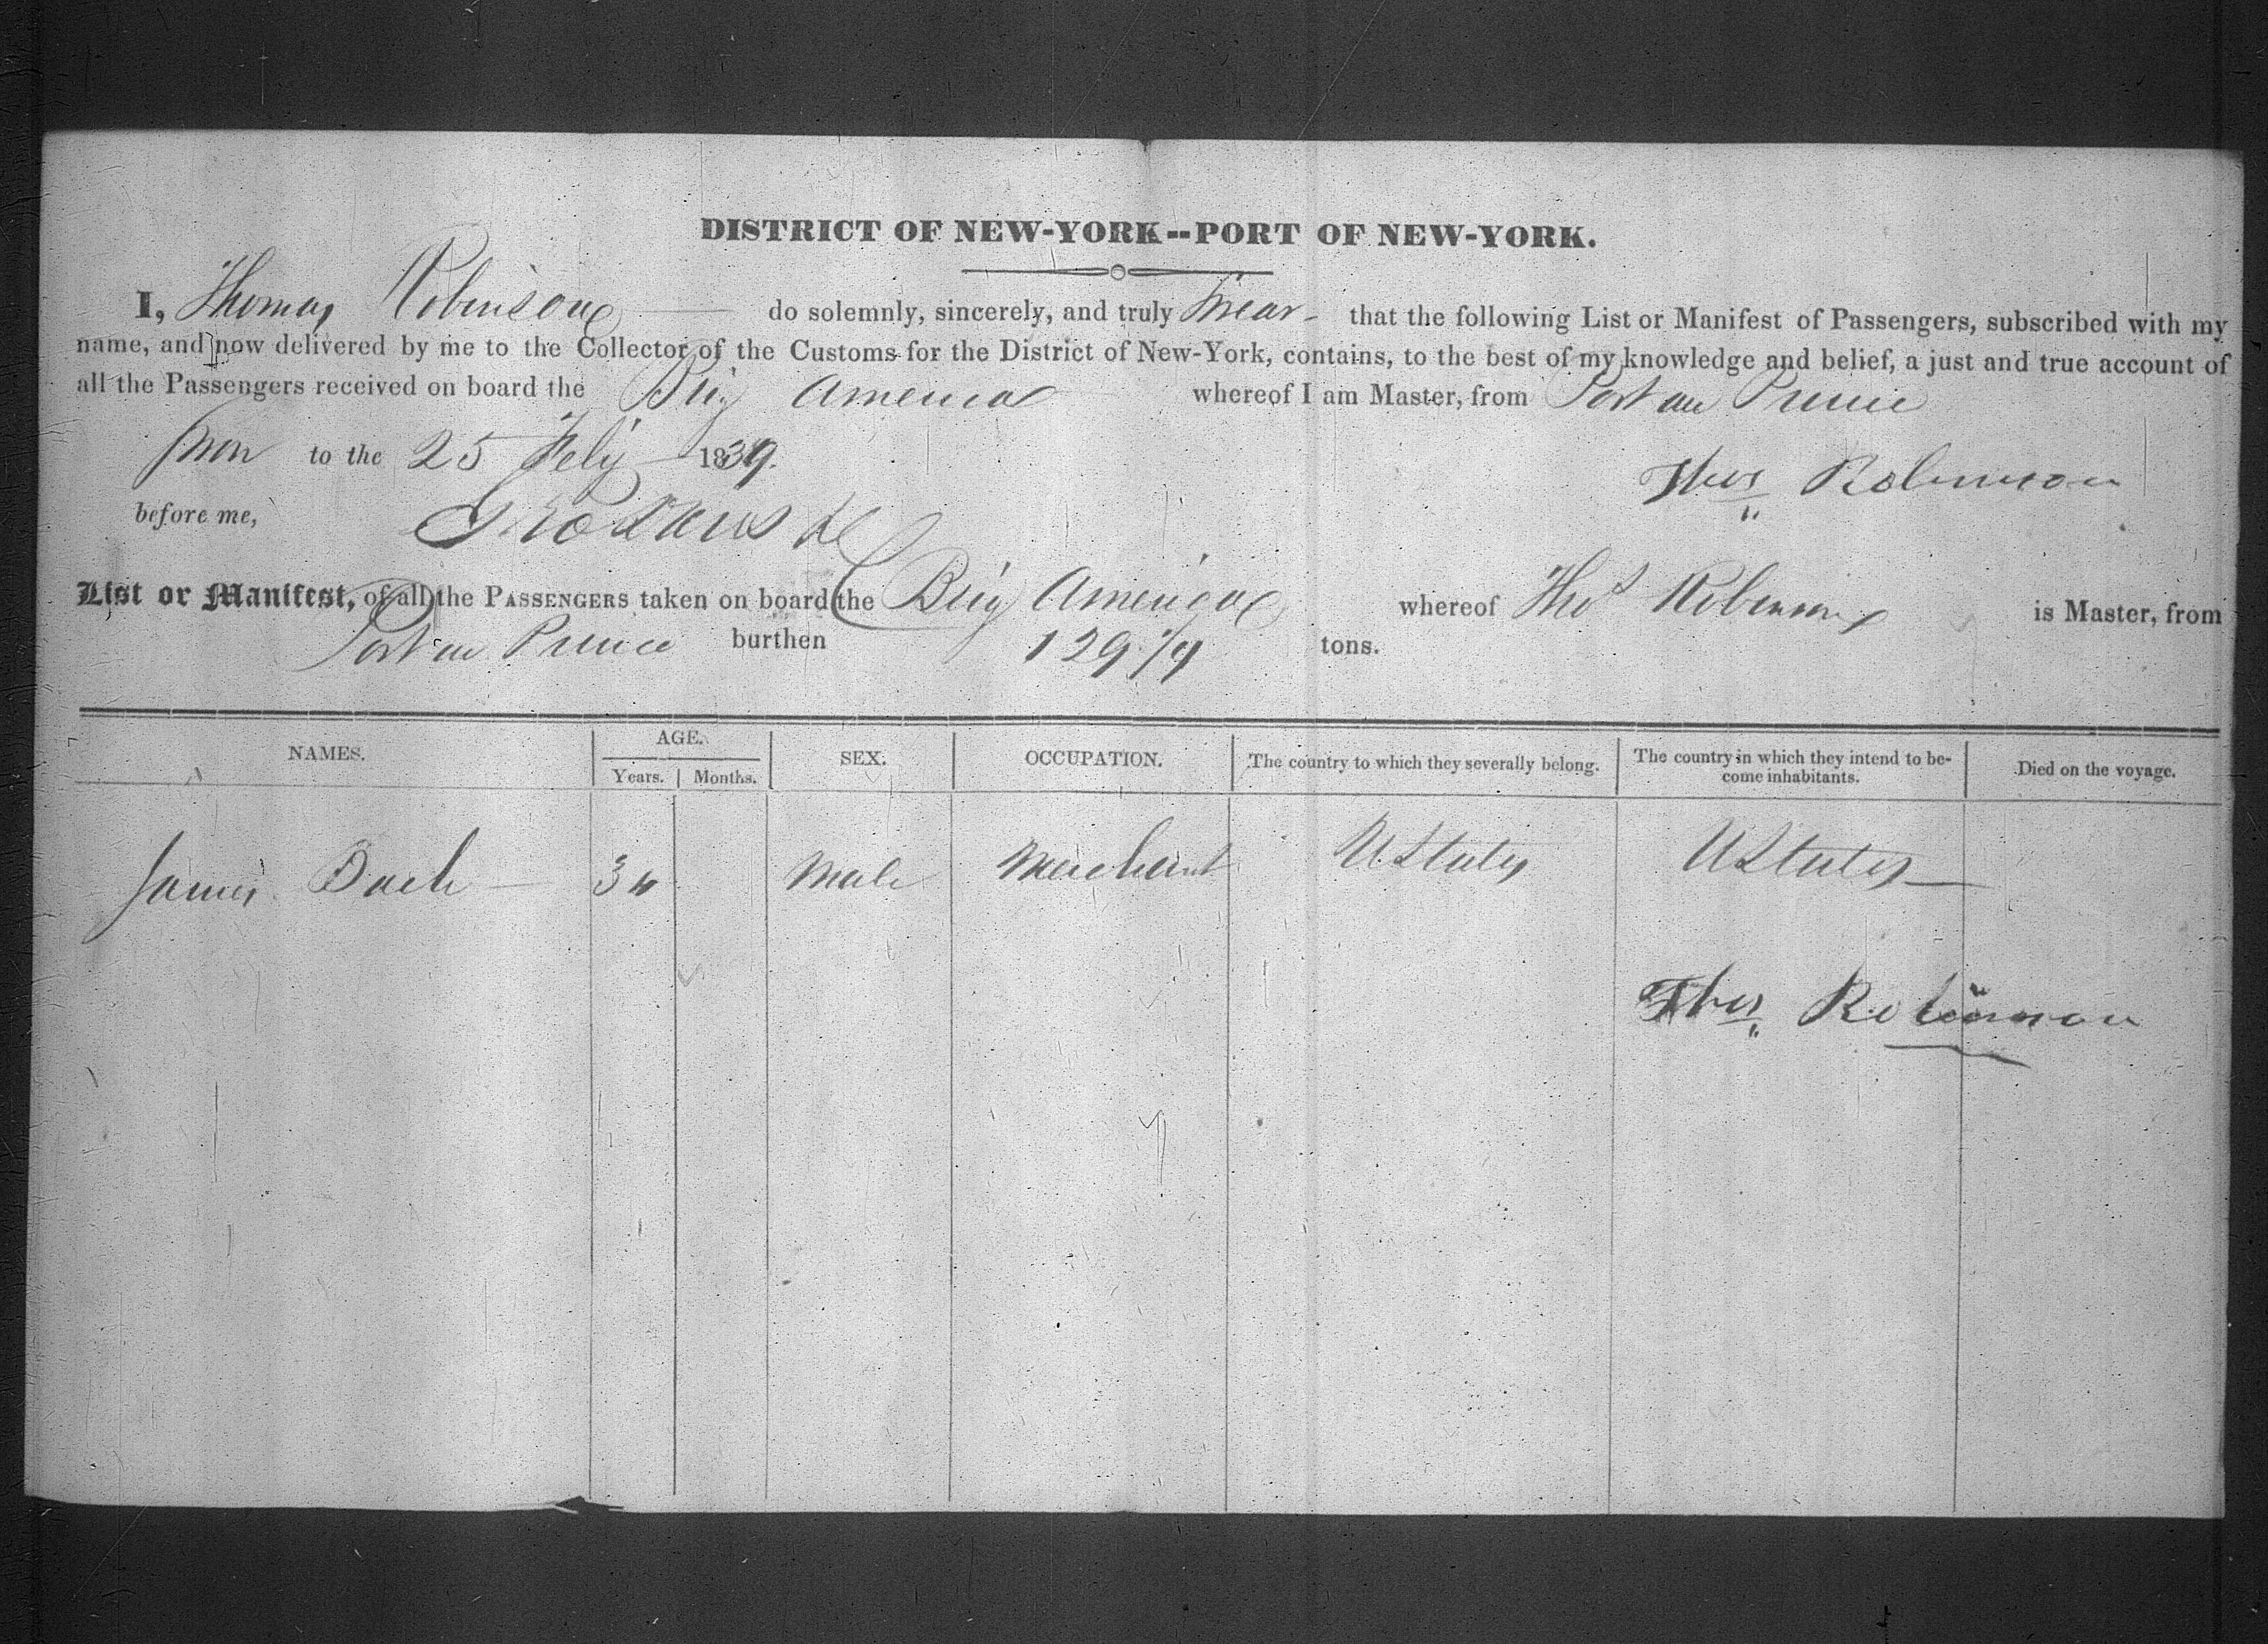 DISTRICT OF NEW-YORK--PORT OF NEW-YORK.
I, Thomas Robinson do solemnly, sincerely, and truly Swear that the following List or Manifest of Passengers, subscribed with my
name, and now delivered by me to the Collector of the Customs for the District of New-York, contains, to the best of my knowledge and belief, a just and true account of
all the Passengers received on board the Brig America whereof I am Master, from Port au Prince
to the 25 Feby 1839.
Thos Robinson
before me,
List or Manifest, of all the PASSENGERS taken on board the Brig America whereof Thos Robinson is Master, from
Port au Prince burthen 129 tons.
NAMES. AGE. SEX. OCCUPATION. The country to which they severally belong. The country in which they intend to be-
come inhabitants. Died on the voyage.
Years. Months.
James Male Merchant U States U States
Thos Robinson